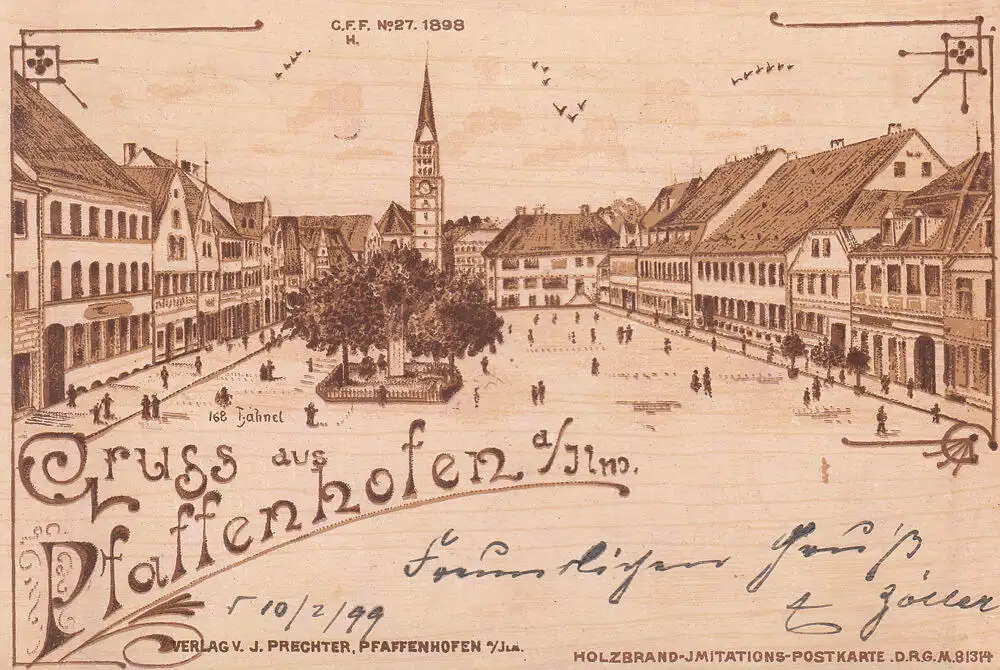 G.F.F. No 27. 1898
H.
168 Zahnel
Gruss aus
Pfaffenhofen a/Ilm.
Freundlichen Gruß
10/2/99
Zöller
VERLAG V. J. PRECHTER, PFAFFENHOFEN a/Jlm.
HOLZBRAND-JMITATIONS-POSTKARTE. D.R.G.M. 81314